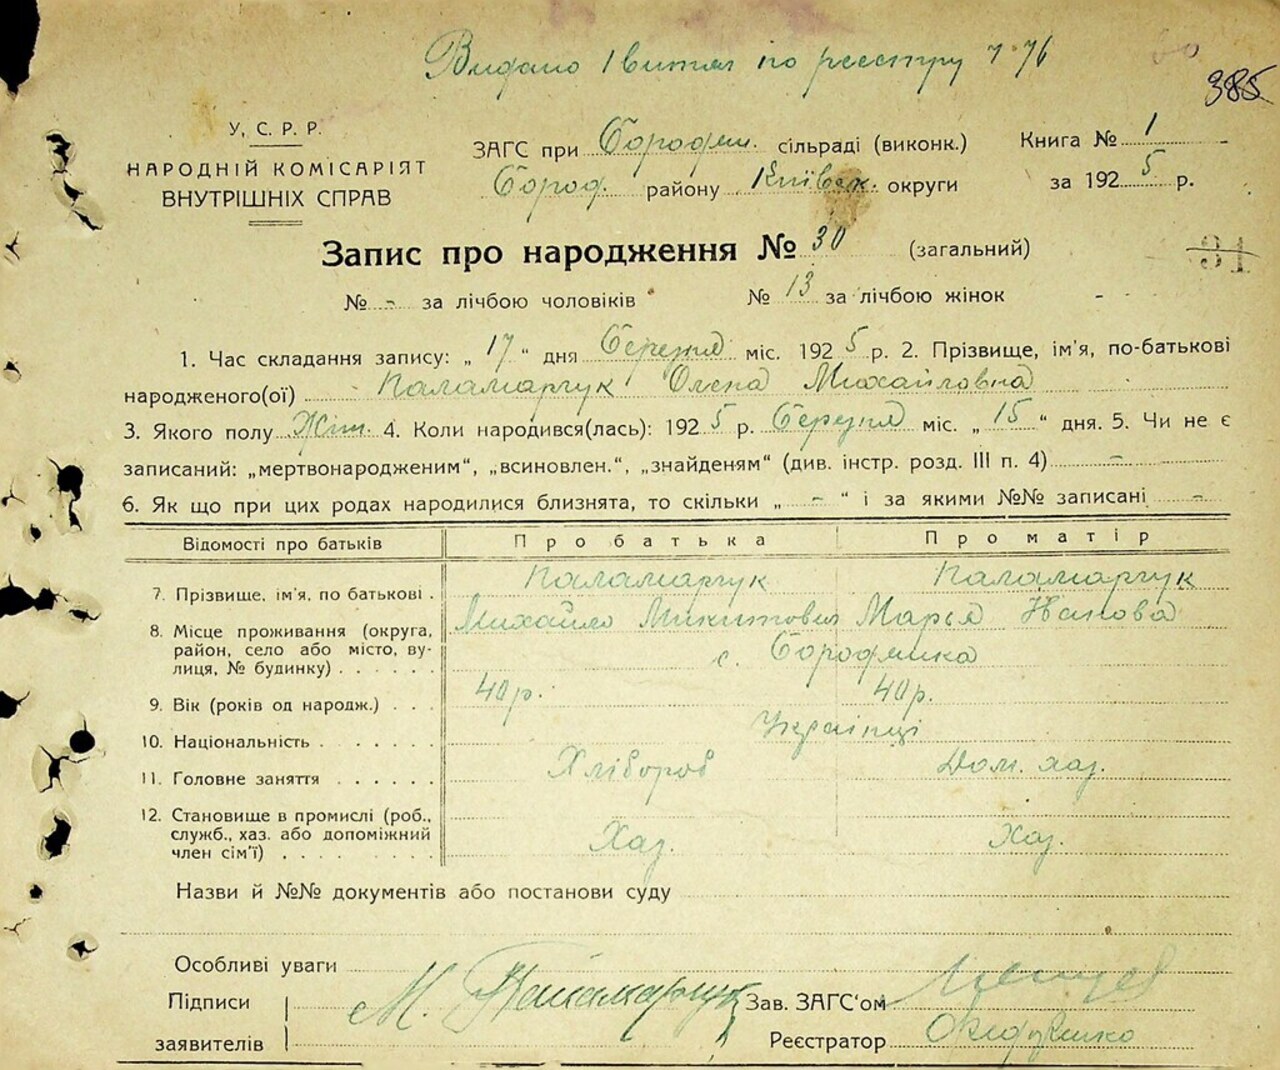 Видано 1 витяг по реєстру 7-76
385
У. С. Р. Р.
НАРОДНІЙ КОМІСАРІЯТ
ВНУТРІШНІХ СПРАВ
ЗАГС при Бородян. сільраді (виконк.)
Бород. району Київськ. округи
Книга № 1
за 1925 р.
Запис про народження № 30 (загальний)
31
№ - за лічбою чоловіків № 13 за лічбою жінок -
1. Час складання запису: „17“ дня Березня міс. 1925 р. 2. Прізвище, ім'я, по-батькові
народженого(ої) Паламарчук Олена Михайловна
3. Якого полу Жін. 4. Коли народився(лась): 1925 р. Березня міс. „15“ дня. 5. Чи не є
записаний: „мертвонародженим“, „всиновлен.“, „знайденям“ (див. інстр. розд. III п. 4) -
6. Як що при цих родах народилися близнята, то скільки „-“ і за якими №№ записані -
Відомості про батьків Про батька Про матір
Паламарчук Паламарчук
7. Прізвище, ім'я, по батькові .
Михайло Микитович Марья Іванова
8. Місце проживання (округа,
район, село або місто, ву-
лиця, № будинку) . . . . . .
с. Бородянка
9. Вік (років од народж.) . . . 40 р. 40 р.
10. Національність . . . . . . Українці
11. Головне заняття . . . . . . Хлібороб Дом. хаз.
12. Становище в промислі (роб.,
служб., хаз. або допоміжний
член сім'ї) . . . . . . . .
Хаз. Хаз.
Назви й №№ документів або постанови суду
Особливі уваги
Підписи
заявителів
М. Паламарчук
Зав. ЗАГС'ом
Реєстратор